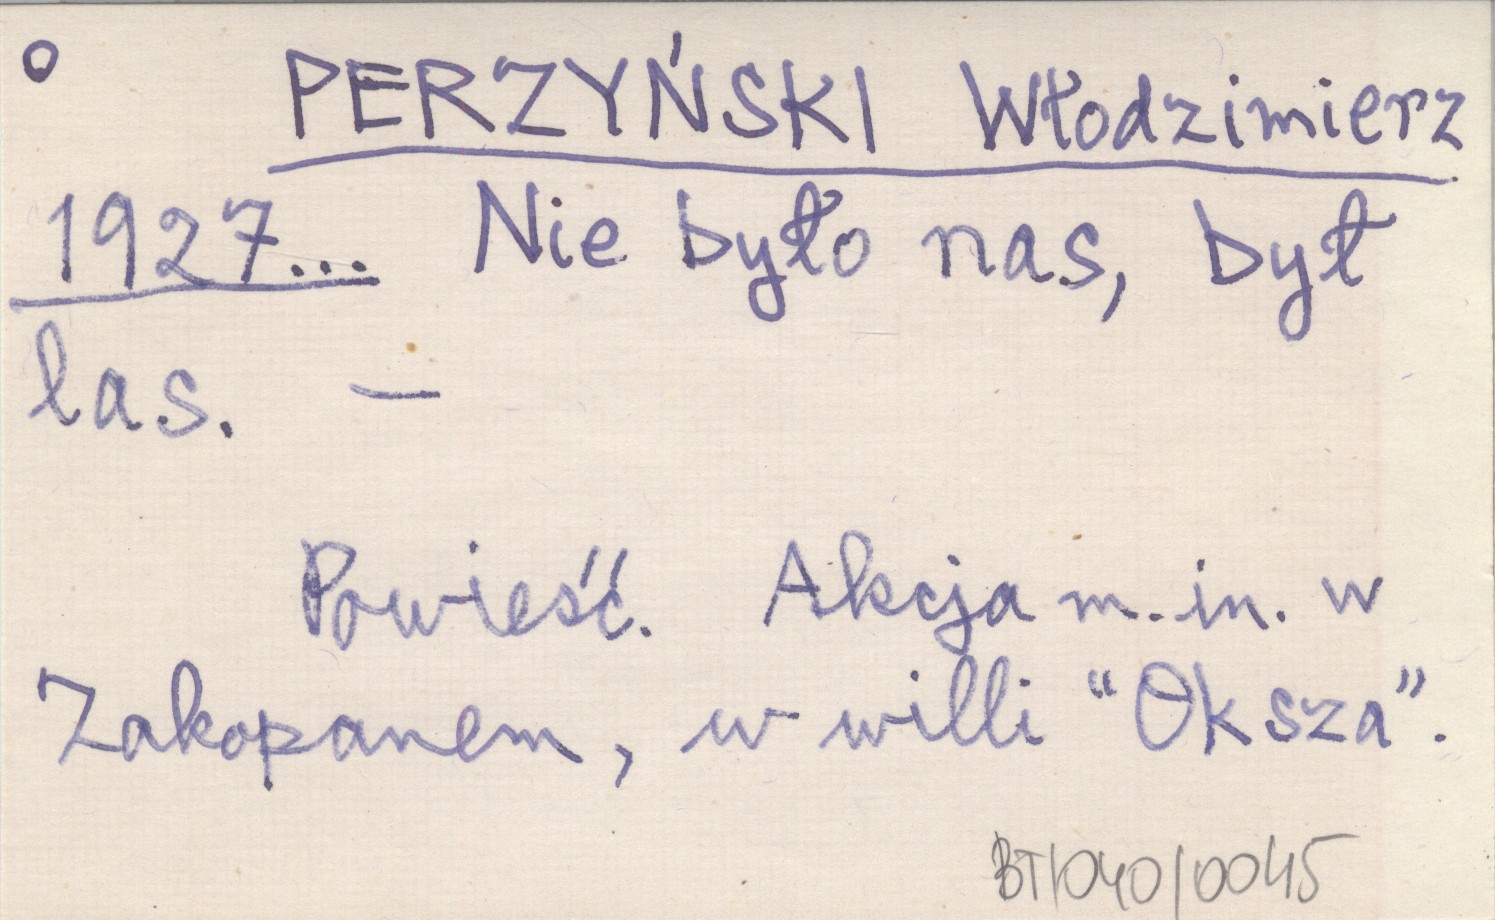 ° PERZYŃSKI Włodzimierz
1927... Nie było nas, był
las. —
Powieść. Akcja m. in. w
Zakopanem, w willi "Oksza".
BT/040/0045